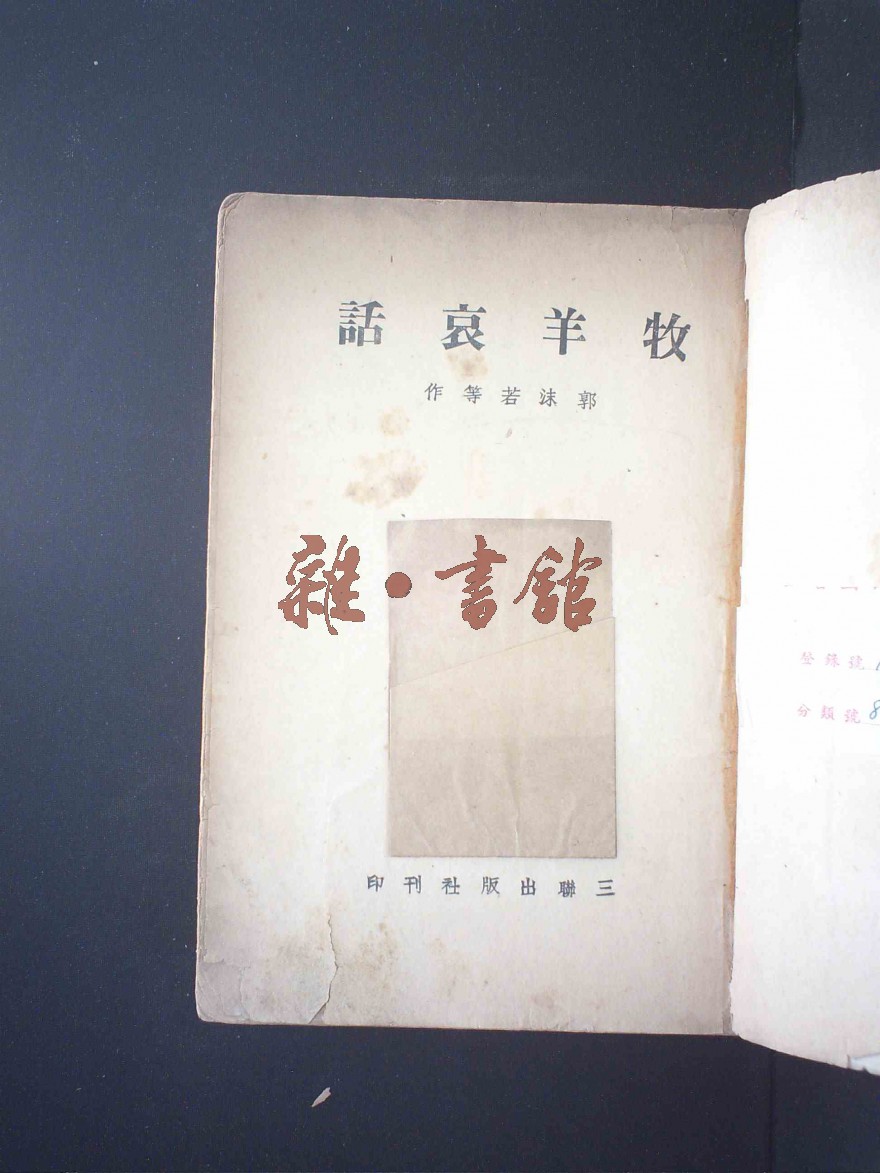 牧羊哀話
郭沫若等作
雜·書館
三聯出版社刊印
登錄號
分類號 8